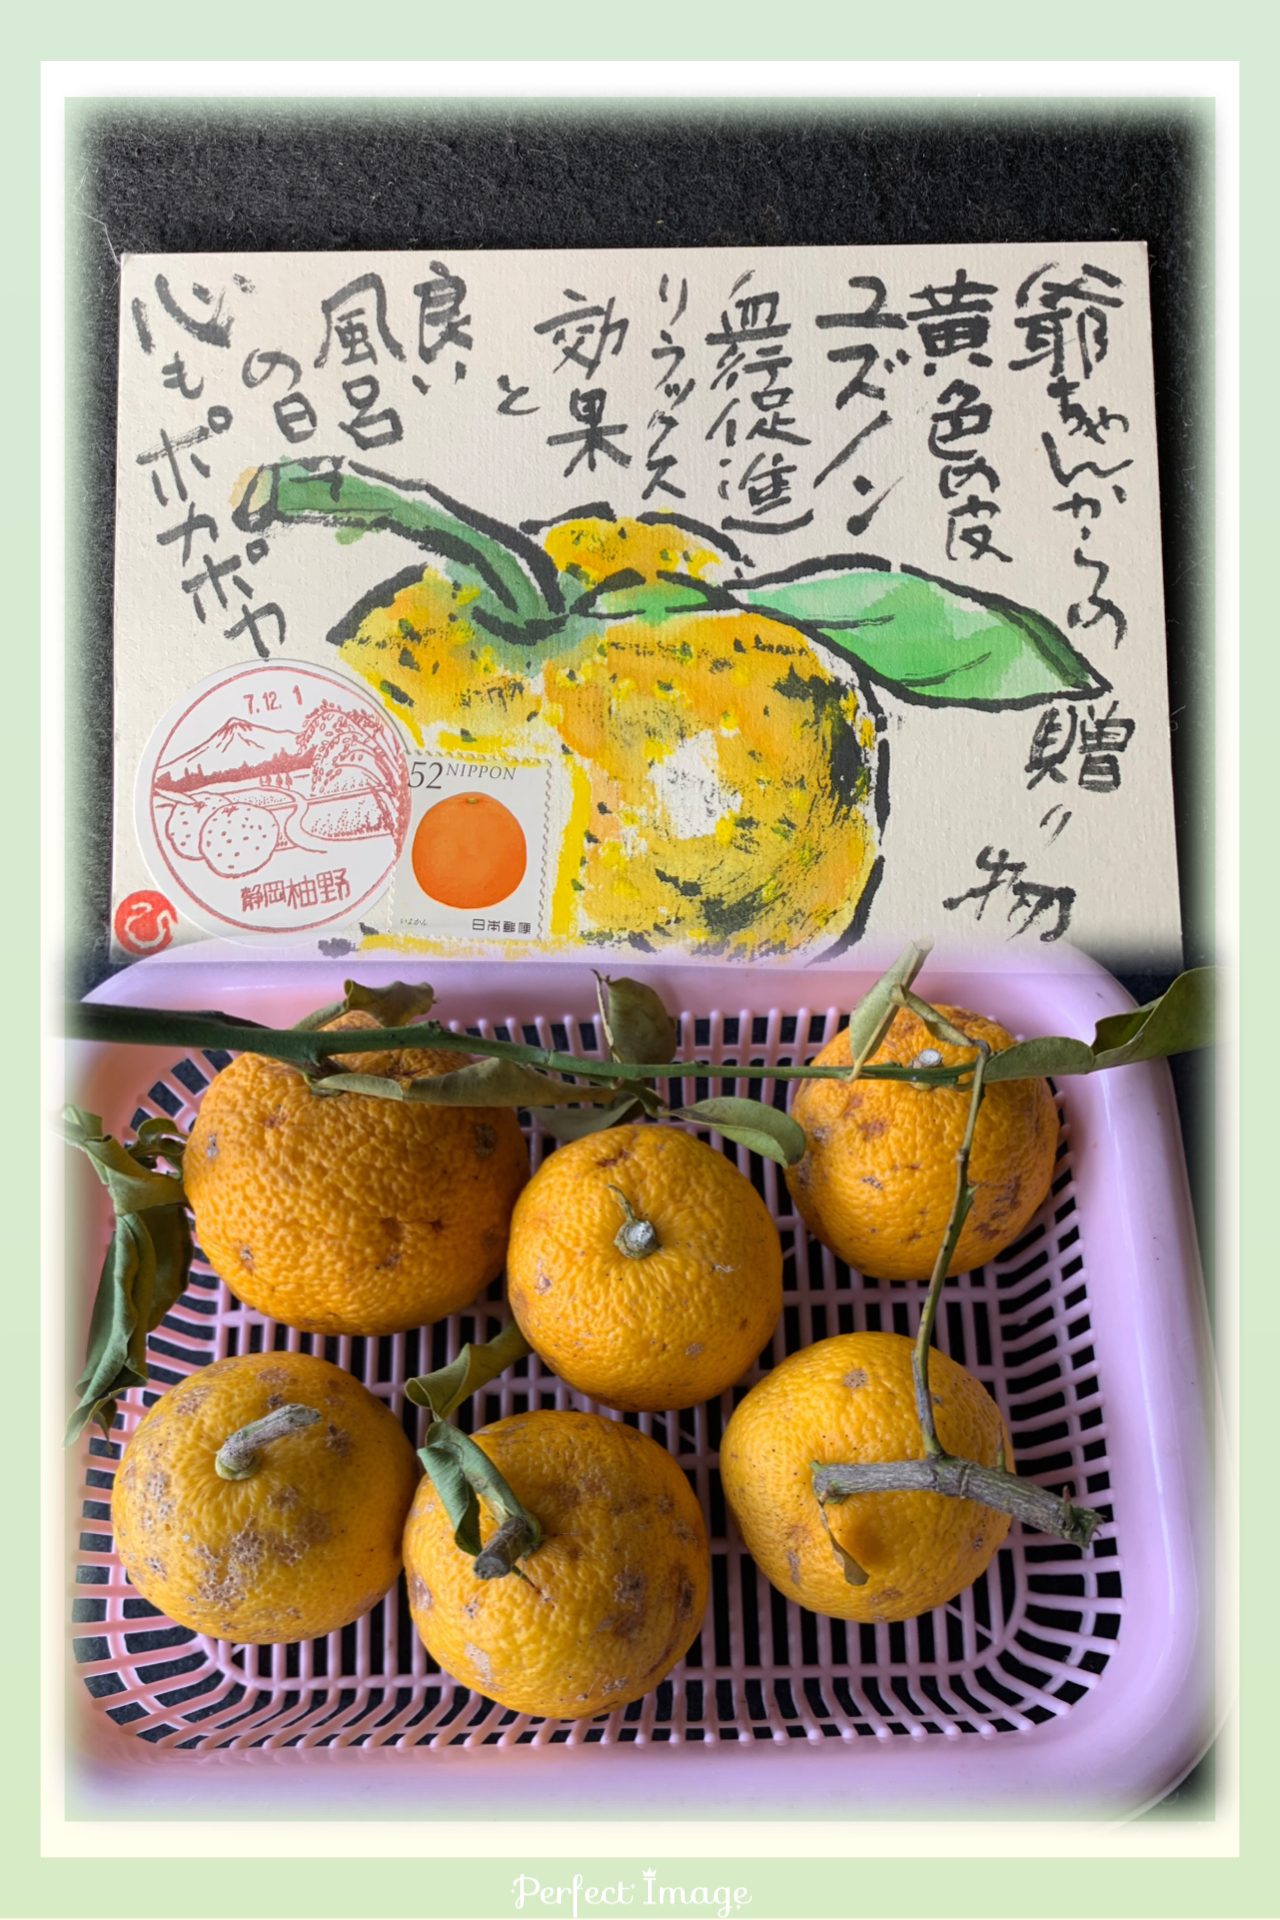 爺ちゃんからの贈り物
黄色の皮
ユズノン
血行促進
リラックス
効果
と
良い
風呂
の日
心もポカポカ
7.12.1
静岡柚野
52 NIPPON
いよかん
日本郵便
Perfect Image